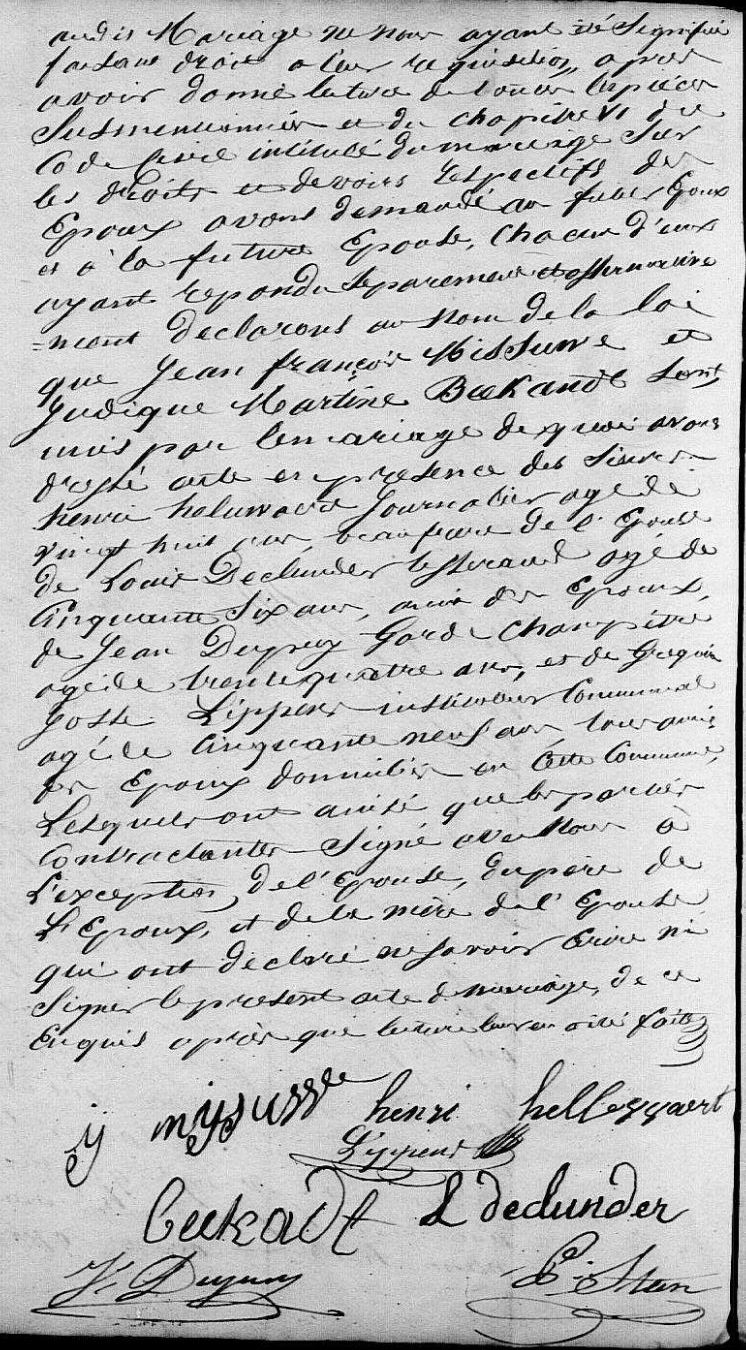 audit Mariage ne nous ayant été Signifiée
faisant droit a leur requisition, apres
avoir donné lecture de toutes les pieces
Susmentionnées et du chapitre VI du
Code Civil intitulé du mariage Sur
les droits et devoirs respectifs des
Epoux avons demandé au futur Epoux
et à la future Epouse, chacun d'eux
ayant repondu Séparement et affirmative
=ment declarons au nom de la loi
que Jean françois Missuwe et
Judique Martine Beekandt Sont
unis par le mariage de quoi avons
dressé acte en présence des Sieurs
henri heluwaert Journalier agé de
vingt huit ans, beau frere de l'Epouse
de Louis Declunder tisserand agé de
Cinquante Six ans, ami des Epoux,
de Jean Dupuy Garde Champêtre
agé de trente quatre ans, et de Gregoire
Josse Lippens instituteur Communal
agé de Cinquante neuf ans, tous amis
des Epoux domiciliés en Cette Commune,
Lesquels ont ainsi que les parties
Contractantes Signé avec Nous à
L'exception de l'Epouse, du père de
L'Epoux, et de la mère de l'Epouse
qui ont déclaré ne Savoir Ecrire ni
Signer le present acte de mariage, de ce
Enquis après que lecture leur en a été faite
henri helleggaert
Lippens
Beekadt L declunder
J. Dupuy